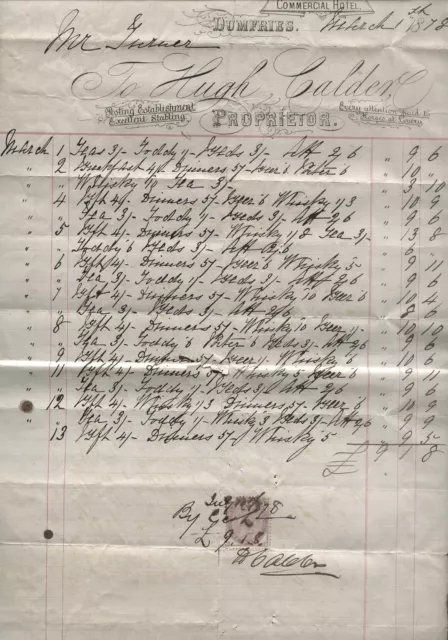 COMMERCIAL HOTEL.
DUMFRIES. March 1th 1878
Mr Turner
To Hugh Calder,
Posting Establishment
Excellent Stabling
Every attention paid to
Horses at Livery
PROPRIETOR.
March 1 Teas 3/- Toddy 1/- Beds 3/- Att 2/6 " 9 6
" 2 Breakfast 4/- Dinners 5/- Beer 6 Porter 6 " 10 "
" Whisky 10 Tea 3/- " 3 10
" 4 Bft 4/- Dinners 5/- Beer 6 Whisky 1/3 " 10 9
" Tea 3/- Toddy 1/- Beds 3/- Att 2/6 " 9 6
" 5 Bft 4/- Dinners 5/- Whisky 1/8 Tea 3/- " 13 8
" Toddy 6 Beds 3/- Att 2/6 " 6
" 6 Bft 4/- Dinners 5/- Beer 6 Whisky 5 " 9 11
" Tea 3/- Toddy 1/- Beds 3/- Att 2/6 " 9 6
" 7 Bft 4/- Dinners 5/- Whisky 10 Beer 6 " 10 4
" Tea 3/- Beds 3/- Att 2/6 " 8 6
" 8 Bft 4/- Dinners 5/- Whisky 10 Beer 1/- " 10 10
" Tea 3/- Toddy 6 Porter 6 Beds 3/- Att 2/6 " 9 6
" 9 Bft 4/- Dinners 5/- Beer 1/- Whisky 6 " 10 6
" 11 Bft 4/- Dinners 5/- Whisky 5 Beer 6 " 9 11
" Tea 3/- Toddy 1/- Beds 3/- Att 2/6 " 9 6
" 12 Bft 4/- Whisky 1/3 Dinners 5/- Beer 6 " 10 9
" Tea 3/- Toddy 1/- Whisky 3 Beds 3/- Att 2/6 " 9 9
" 13 Bft 4/- Dinners 5/- Whisky 5 " 9 5
£ 9 1 8
1878
By
£ 9.1.8.
H Calder